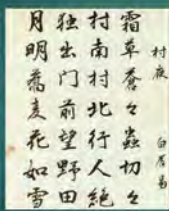 村夜
白居易
霜草蒼々蟲切々
村南村北行人絶
独出门前望野田
月明蕎麦花如雪